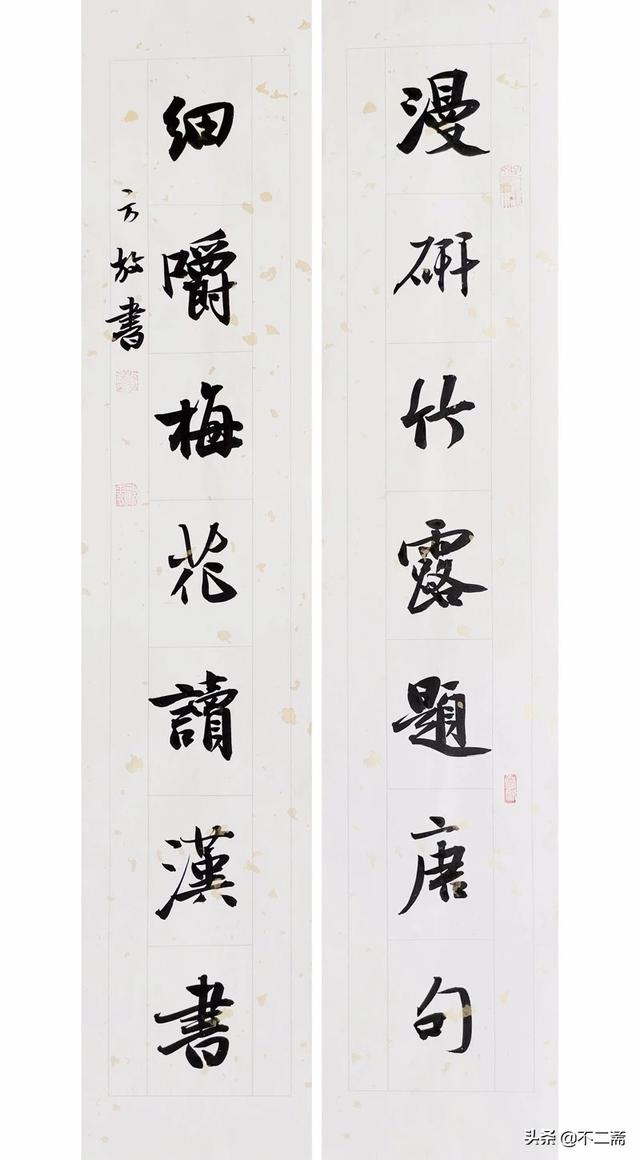 漫研竹露題唐句
細嚼梅花讀漢書
方放書
头条 @不二斋